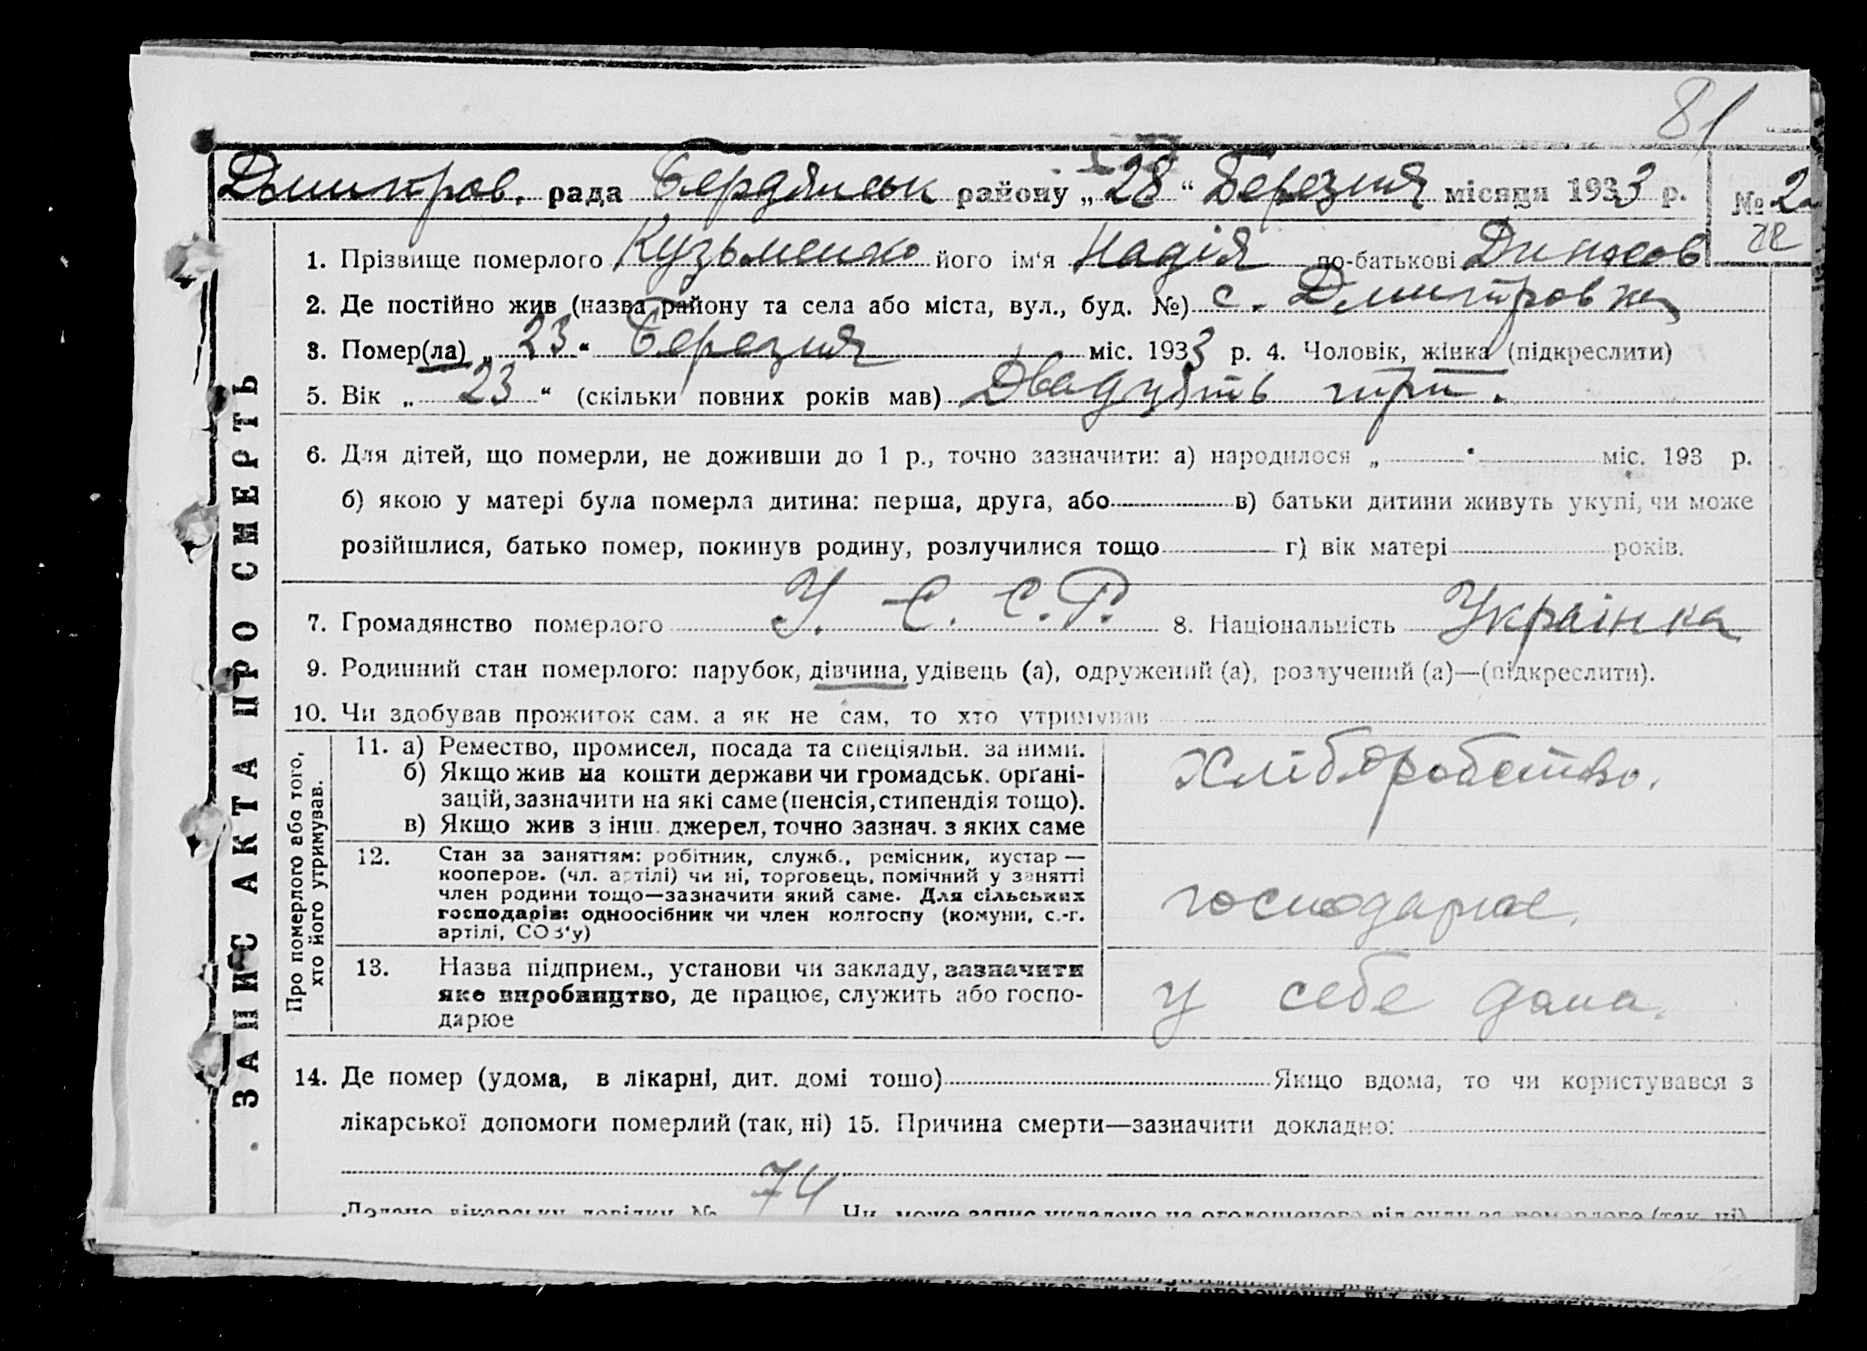 81
Дмитров. рада Бердянськ району „28" Березня місяця 1933 р. № 2
1. Прізвище померлого Кузьменко його ім'я Надія по-батькові
2. Де постійно жив (назва району та села або міста, вул., буд. №) с. Дмитровка
3. Помер(ла) „23" Березня міс. 1933 р. 4. Чоловік, жінка (підкреслити)
5. Вік „23" (скільки повних років мав) Двадцять три.
6. Для дітей, що померли, не доживши до 1 р., точно зазначити: а) народилося „ " міс. 193 р.
б) якою у матері була померла дитина: перша, друга, або в) батьки дитини живуть укупі, чи може
розійшлися, батько помер, покинув родину, розлучилися тощо г) вік матері років.
7. Громадянство померлого У. С. С. Р. 8. Національність Украінка
9. Родинний стан померлого: парубок, дівчина, удівець (а), одружений (а), розлучений (а)—(підкреслити).
10. Чи здобував прожиток сам, а як не сам, то хто утримував
ЗАПИС АКТА ПРО СМЕРТЬ
Про померлого або того,
хто його утримував.
11. а) Ремество, промисел, посада та спеціяльн. за ними.
б) Якщо жив на кошти держави чи громадськ. органі-
зацій, зазначити на які саме (пенсія, стипендія тощо).
в) Якщо жив з інш. джерел, точно зазнач. з яких саме
Хліборобство.
12. Стан за заняттям: робітник, служб., ремісник, кустар —
кооперов. (чл. артілі) чи ні, торговець, помічний у занятті
член родини тощо—зазначити який саме. Для сільських
господарів: одноосібник чи член колгоспу (комуни, с.-г.
артілі, СОЗ'у)
13. Назва підприєм., установи чи закладу, зазначити
яке виробництво, де працює, служить або госпо-
дарює
у себе дома.
14. Де помер (удома, в лікарні, дит. домі тощо) Якщо вдома, то чи користувався з
лікарської допомоги померлий (так, ні) 15. Причина смерти—зазначити докладно:
74
Додано лікарську довідку № Чи може запис укладено на оголошеного від суду за померлого (так, ні)